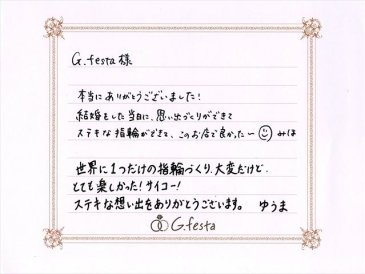 G.festa 様
本当にありがとうございました!
結婚をした当日に、思い出づくりができて
ステキな指輪ができて、このお店で良かったー みほ
世界に1つだけの指輪づくり、大変だけど、
とても楽しかった!サイコー!
ステキな想い出をありがとうございます。 ゆうま
G.festa